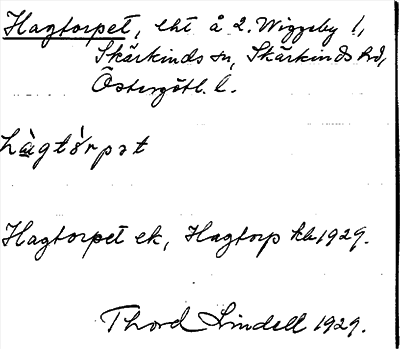 Hagtorpet, lht å 2. Wiggeby !,
Skärkinds sn, Skärkinds hd,
Östergötl. l.
hàgtórpət
Hagtorpet ek, Hagtorp kb 1929.
Thord Lindell 1929.